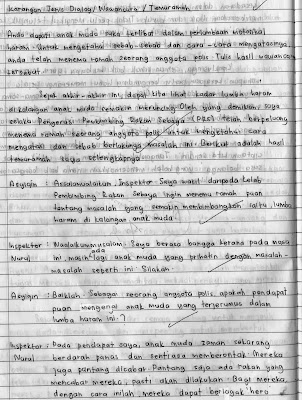 Karangan Jenis Dialog / Wawancara / Temuramah
Anda dapati anak muda suka terlibat dalam perlumbaan motosikal
haram. Untuk mengetahui sebab-sebab dan cara-cara mengatasinya,
anda telah menemu ramah seorang anggota polis. Tulis hasil wawancara
tersebut.
Sejak akhir-akhir ini, dapat kita lihat kadar lumba haram
di kalangan anak muda semakin meruncing. Oleh yang demikian, saya
selaku Pengerusi Pembimbing Rakan Sebaya (PRS) telah berpeluang
menemu ramah seorang anggota polis untuk mengetahui cara
mengatasi dan sebab berlakunya masalah ini. Berikut adalah hasil
temuramah saya selengkapnya.
Asyiqin : Assalamualaikum, Inspektor. Saya wakil daripada Kelab
Pembimbing Rakan Sebaya ingin menemu ramah puan
tentang masalah yang semakin membimbangkan iaitu, lumba
haram di kalangan anak muda.
Inspektor : Waalaikumusalam. Saya berasa bangga kerana pada masa
Nurul ini, masih ada lagi anak muda yang prihatin dengan masalah-
masalah seperti ini. Silakan.
Asyiqin : Baiklah. Sebagai seorang anggota polis, apakah pendapat
puan mengenai anak muda yang terjerumus dalam
lumba haram ini?
Inspektor : Pada pendapat saya, anak muda zaman sekarang
Nurul berdarah panas dan sentiasa memberontak. Mereka
juga pantang dicabar. Pantang saja ada rakan yang
mencabar mereka, pasti akan dilakukan. Bagi mereka,
dengan cara inilah mereka dapat berlagak 'hero'